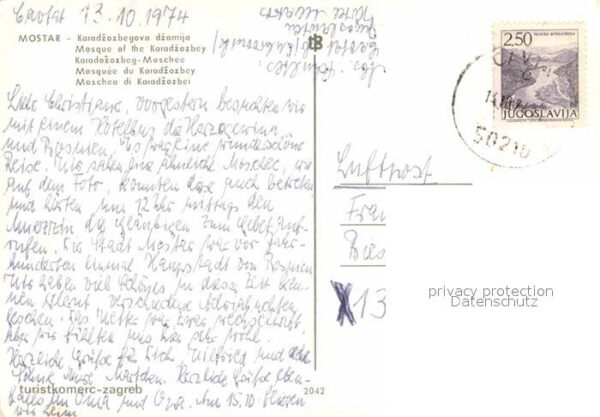 Cavtat 13.10.1974
MOSTAR - Karadžozbegova džamija
Mosque of the Karadžozbey
Karadožozbeg-Moschee
Mosquée du Karadžozbey
Moschea di Karadžozbei
Liebe Christiane, vorgestern besuchten wir
mit einem Hotelbus die Herzegowina
und Bosnien. Es war eine wunderschöne
Reise. Wir sahen eine ähnliche Moschee, wie
auf dem Foto, konnten diese auch betreten
und hörten um 12 Uhr mittags den
Muezzin die Gläubigen zum Gebet auf-
rufen. Die Stadt Mostar war vor Jahr-
hunderten einmal Hauptstadt von Bosnien
Wir haben viel Schönes in dieser Zeit ken-
nen gelernt verschiedene
gesehen. Das Wetter war
aber wir fühlten uns hier sehr wohl.
Herzliche Grüße für Dich, und
Herzliche Grüße eben-
falls an Oma und Opa. Am 15.10. fliegen
wir heim
turistkomerc-zagreb
2042
tB
Cavtat
2.50
JUGOSLAVIJA
50210
Luftpost
Frau
X13
privacy protection
Datenschutz